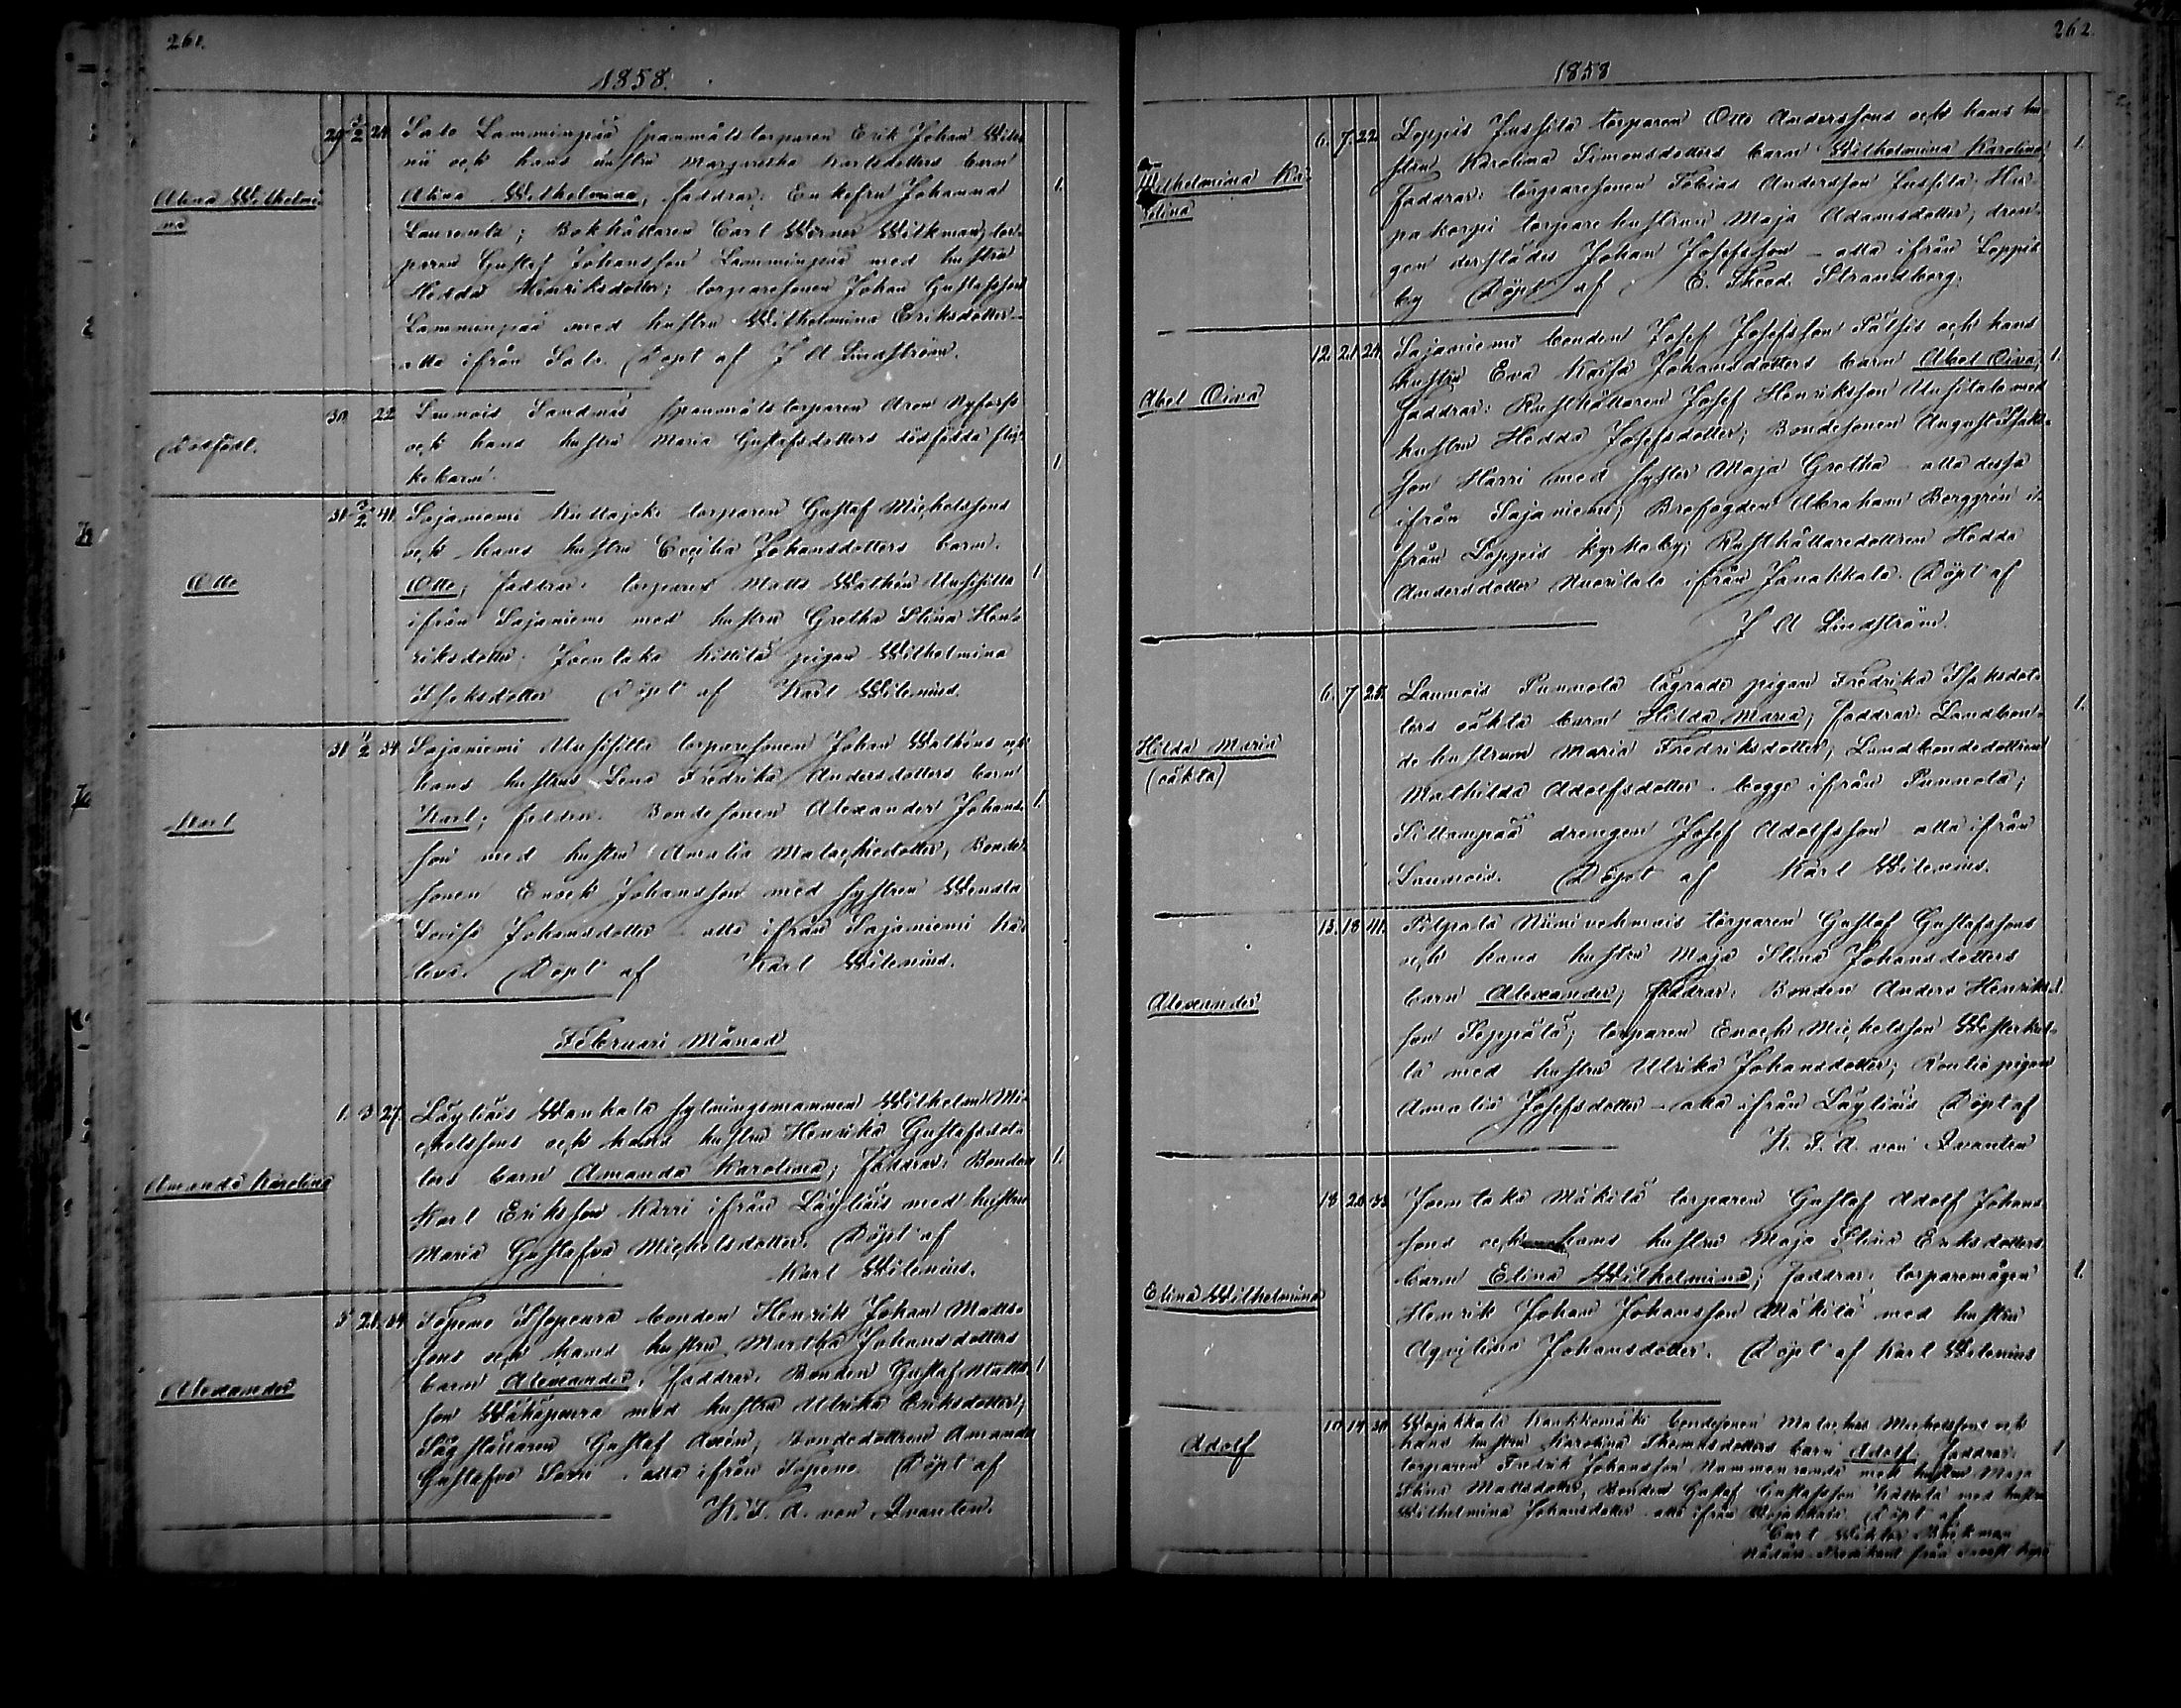 261.
1858.
Alina Wilhelmi-
na
29 3/2 24 Salo Lamminpää spanmåls torparen Erik Johan
och hans hustru Margaretha Karlsdotters barn
Alina Wilhelmina, faddrar: Enkefru Johanna 1.
Laurentz; Bokhållaren Carl Werner Wilkman, tor-
paren Gustaf Johansson Lamminpää med hustru
Hedda Henriksdotter; torparesonen Johan Gustafsson
Lamminpää med hustru Wilhelmina Eriksdotter -
alla ifrån Salo. Döpt af J A Lindström.
Dödfödt.
30 22 Launois Sandnäs spanmåls torparen Aron Nyfors
och hans hustru Maria Gustafsdotters dödfödda flic-
kebarn. 1
Otto
31 3/2 41 Sajaniemi torparen Gustaf Michelssons
och hans hustru Cecilia Johansdotters barn
Otto; faddrar: torparen Matts Wathén Uusihilla 1
ifrån Sajaniemi med hustru Gretha Stina Hen-
riksdotter. Joentaka Kittilä pigan Wilhelmina
Isaksdotter Döpt af Karl Wilenius.
Karl
31 1/2 34 Sajaniemi Uusihilla torparesonen Johan Wathéns och
hans hustrus Lena Fredrika Andersdotters barn
Karl; faddrar: Bondesonen Alexander Johans- 1.
son med hustru Amalia Malachiedotter, Bonde-
sonen Enock Johansson med systern Wendla
Lovisa Johansdotter - alla ifrån Sajaniemi
Döpt af Karl Wilenius.
Februari Månad
Amanda Karolina
1. 3 27. Läyliäis Wanhala sytningsmannen Wilhelm Mi-
chelssons och hans hustru Henrika Gustafsdot-
ters barn Amanda Karolina; faddrar: Bonden 1.
Karl Eriksson Kärri ifrån Läyliäis med hustru
Maria Gustafva Michelsdotter. Döpt af
Karl Wilenius.
Alexander
5 21 34 Topeno Isopeura bonden Henrik Johan Matts-
sons och hans hustru Martha Johansdotters
barn Alexander. faddrar: Bonden Gustaf Matts- 1
son Wähäpeura med hustru Ulrika Eriksdotter;
Gustaf Axén, Bondedottren Amanda
Gustafva - alla ifrån Topeno. Döpt af
K. F. A. von Qvanten.
262.
1858
Wilhelmina Ka-
rolina
6. 7. 22 Loppis Jussila torparen Otto Anderssons och hans hu-
stru Karolina Simonsdotters barn Wilhelmina Karolina; 1.
Faddrar: torparesonen Tobias Andersson Jussila. Haa-
pakorpi torpare hustrun Maja Adamsdotter, dren-
gen derstädes Johan Josefsson - alla ifrån Loppis
by Döpt af E. Theod. Strandberg.
Abel Oiva
12. 21 24. Sajaniemi bonden Josef Josefsson Pätsis och hans
hustru Eva Kaisa Johansdotters barn Abel Oiva; 1.
faddrar: Rusthållaren Josef Henriksson Uusitalo med
hustru Hedda Josefsdotter; Bondesonen August Isaks-
son Harri med syster Maja Gretha - alla dessa
ifrån Sajaniemi; Brofogden Abraham Berggrén i-
från Loppis kyrkoby; Rusthållaredottren Hedda
Andersdotter Nuoritalo ifrån Janakkala. Döpt af
J A Lindström.
Hilda Maria
(oäkta)
6. 7 25. Launois Punnola lägrade pigan Fredrika Isaksdot-
ters oäkta barn Hilda Maria; faddrar: Landbon- 1.
de hustrun Maria Fredriksdotter; Landbondedottren
Mathilda Adolfsdotter. begge ifrån Punnola;
Sillanpää drengen Josef Adolfsson - alla ifrån
Launois. Döpt af Karl Wilenius.
Alexander
15. 18 41. Pilpala torparen Gustaf Gustafssons
och hans hustru Maja Stina Johansdotters
barn Alexander; faddrar: Bonden Anders Henriks- 1.
son Seppälä; torparen Enock Michelsson
med hustru Ulrika Johansdotter; pigan
Amalia Josefsdotter - alla ifrån Läyliäis Döpt af
K. F. A. von Qvanten
Elina Wilhelmina
18 20 Joentaka Mäkilä torparen Gustaf Adolf Johans-
sons och hans hustru Maja Stina Eriksdotters
barn Elina Wilhelmina; faddrar: torparemågen 1.
Henrik Johan Johansson Mäkilä med hustru
Aqvilina Johansdotter. Döpt af Karl Wilenius
Adolf
10 14 30 Wojakkala bondesonen Malachias Michelssons och
hans hustru Karolina Thomasdotters barn Adolf. Faddrar: 1
torparen Fredrik Johansson med hustru Maja
Stina Mattsdotter, Bonden Gustaf Gustafsson med hustru
Wilhelmina Johansdotter - alla ifrån Wojakkala. Döpt af
Carl Wiktor
Predikant från